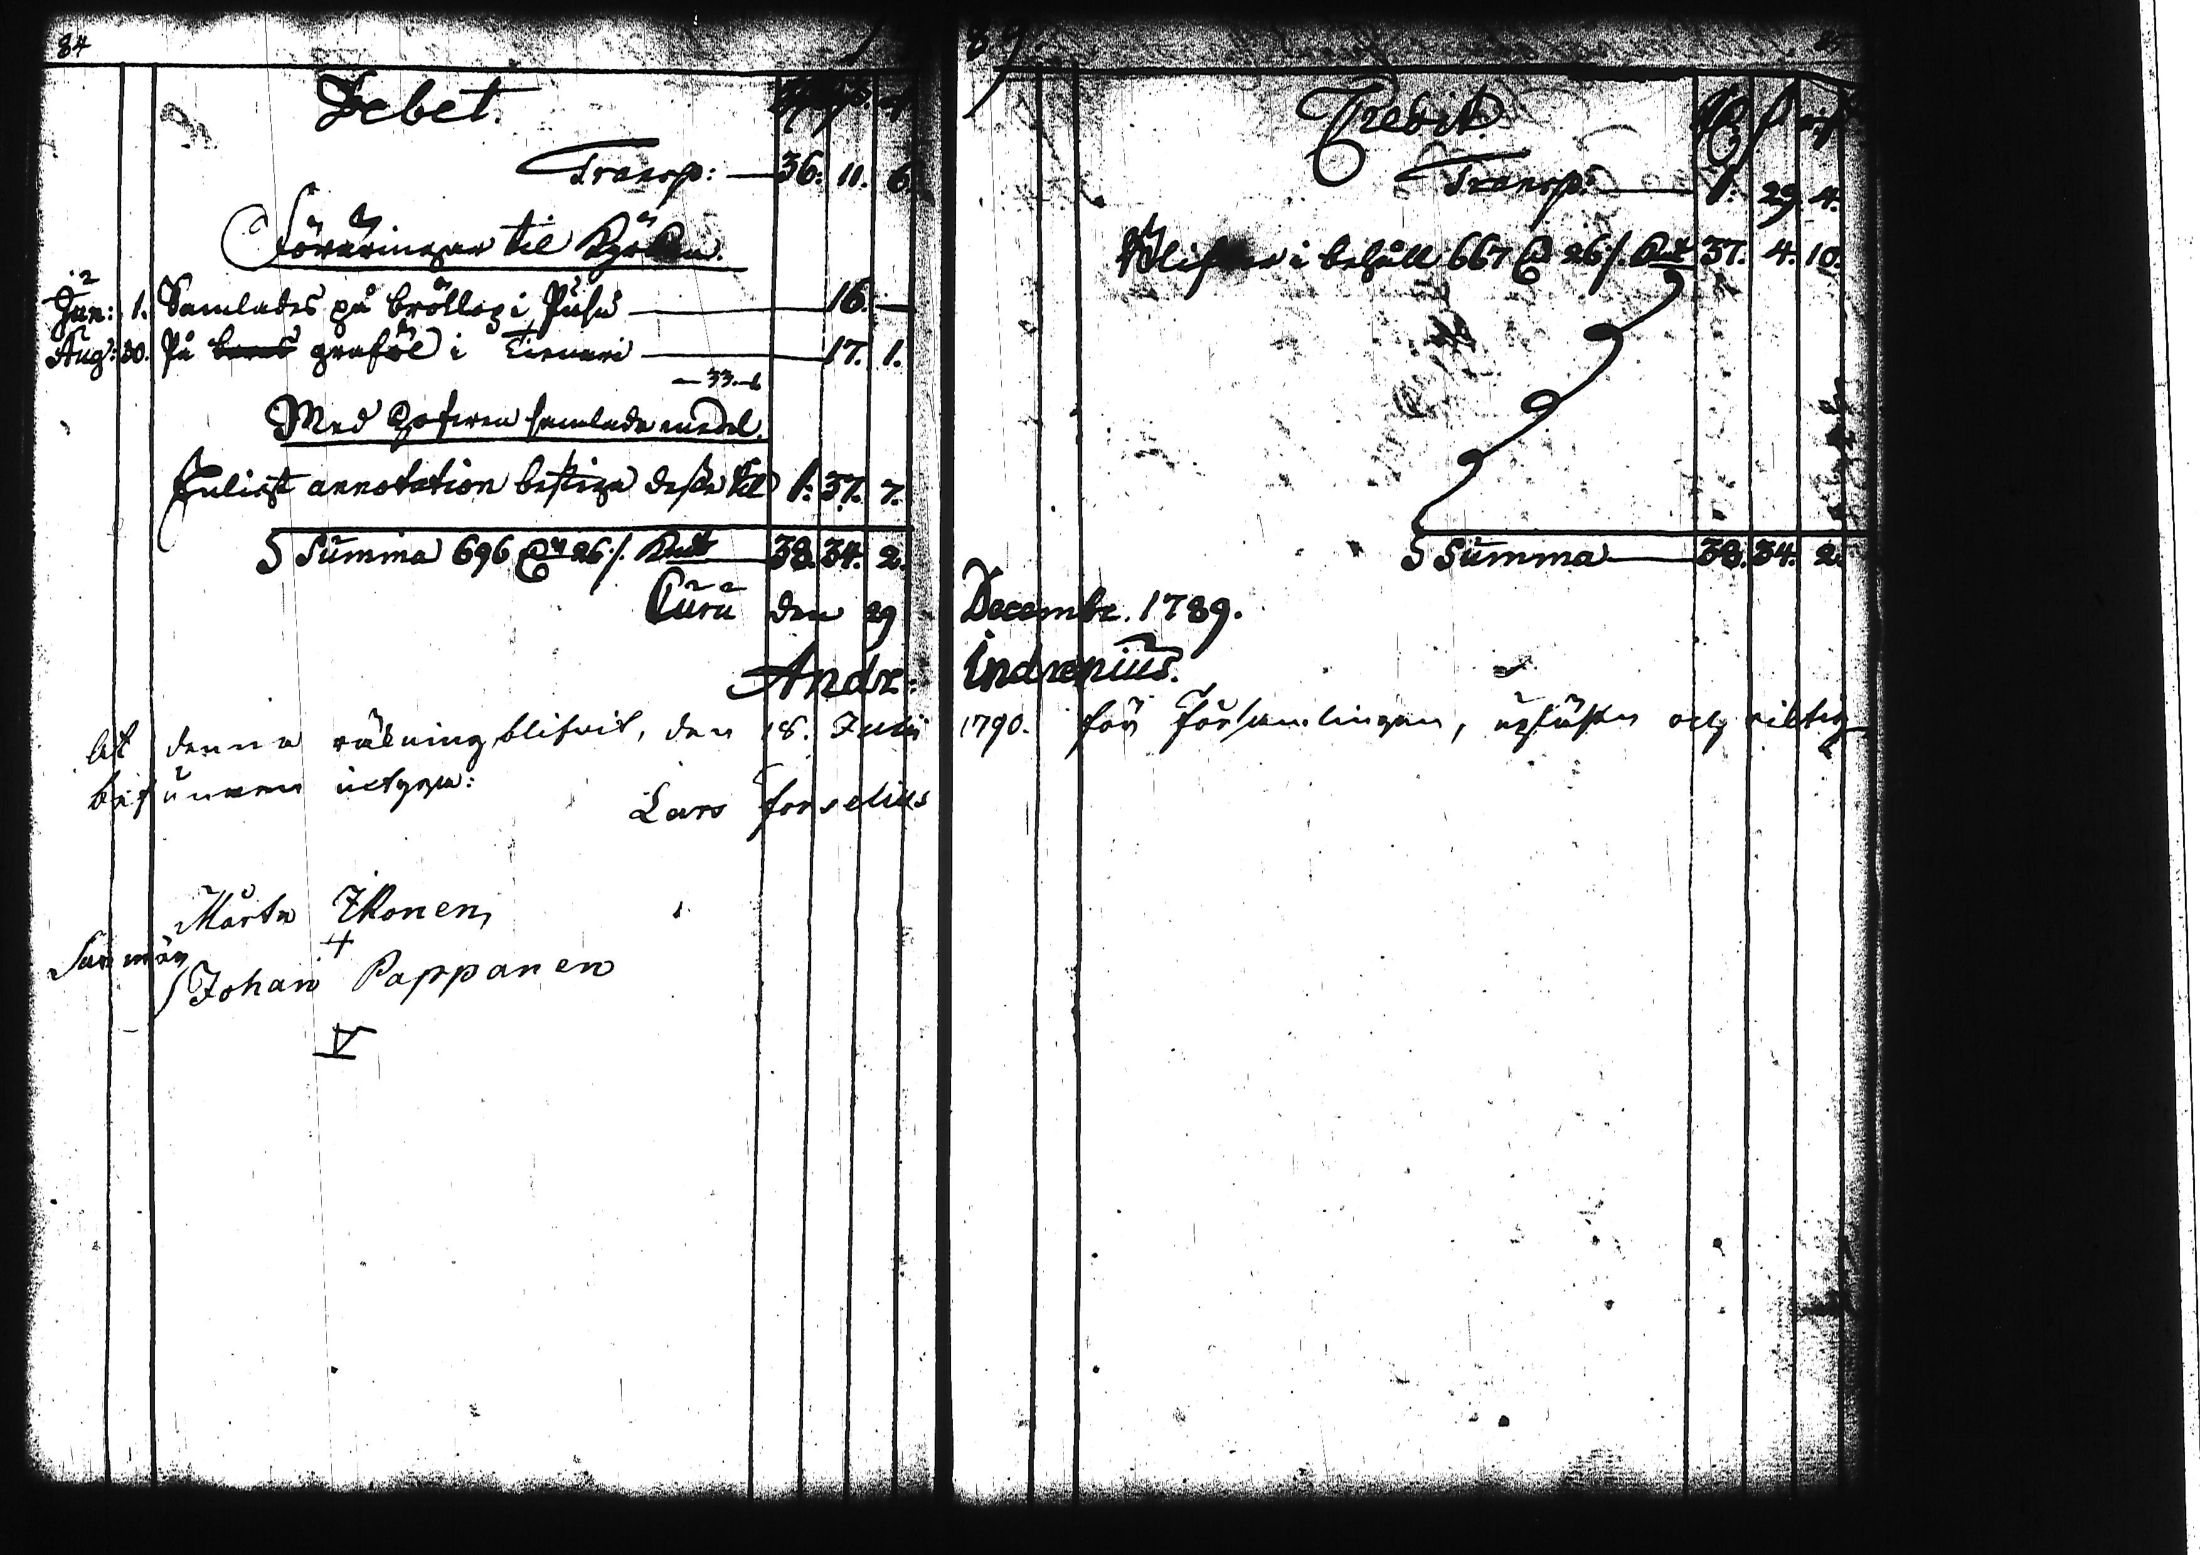 84
Debet.
Transp: 36. 11. 6.
Föräringar til Kyrkan.
Jan: 1. Samlades på bröllop i Puhu 16. —
Aug: 30. På barns grafoel i Tiruari 17. 1.
— 33. 1
Med Hofwen samlade medel.
Enligt annotation bestiga desse til 1. 37. 7.
Summa 696 26 /. 38. 34. 2.
den 29
Andr:
At denna räkning blifvit, den 18. Julii
befunnen intyga:
Lars Forselius
Mårten Ikonen,
+
Sexmän
Johan Pappanen
V
89.
Credit.
Transp: 1. 29. 4.
Blifwer i behåll 667 26 /. 37. 4. 10.
Summa 38. 34. 2.
Decembr. 1789.
Indrenius.
1790. för Församlingen, upläsen och riktig